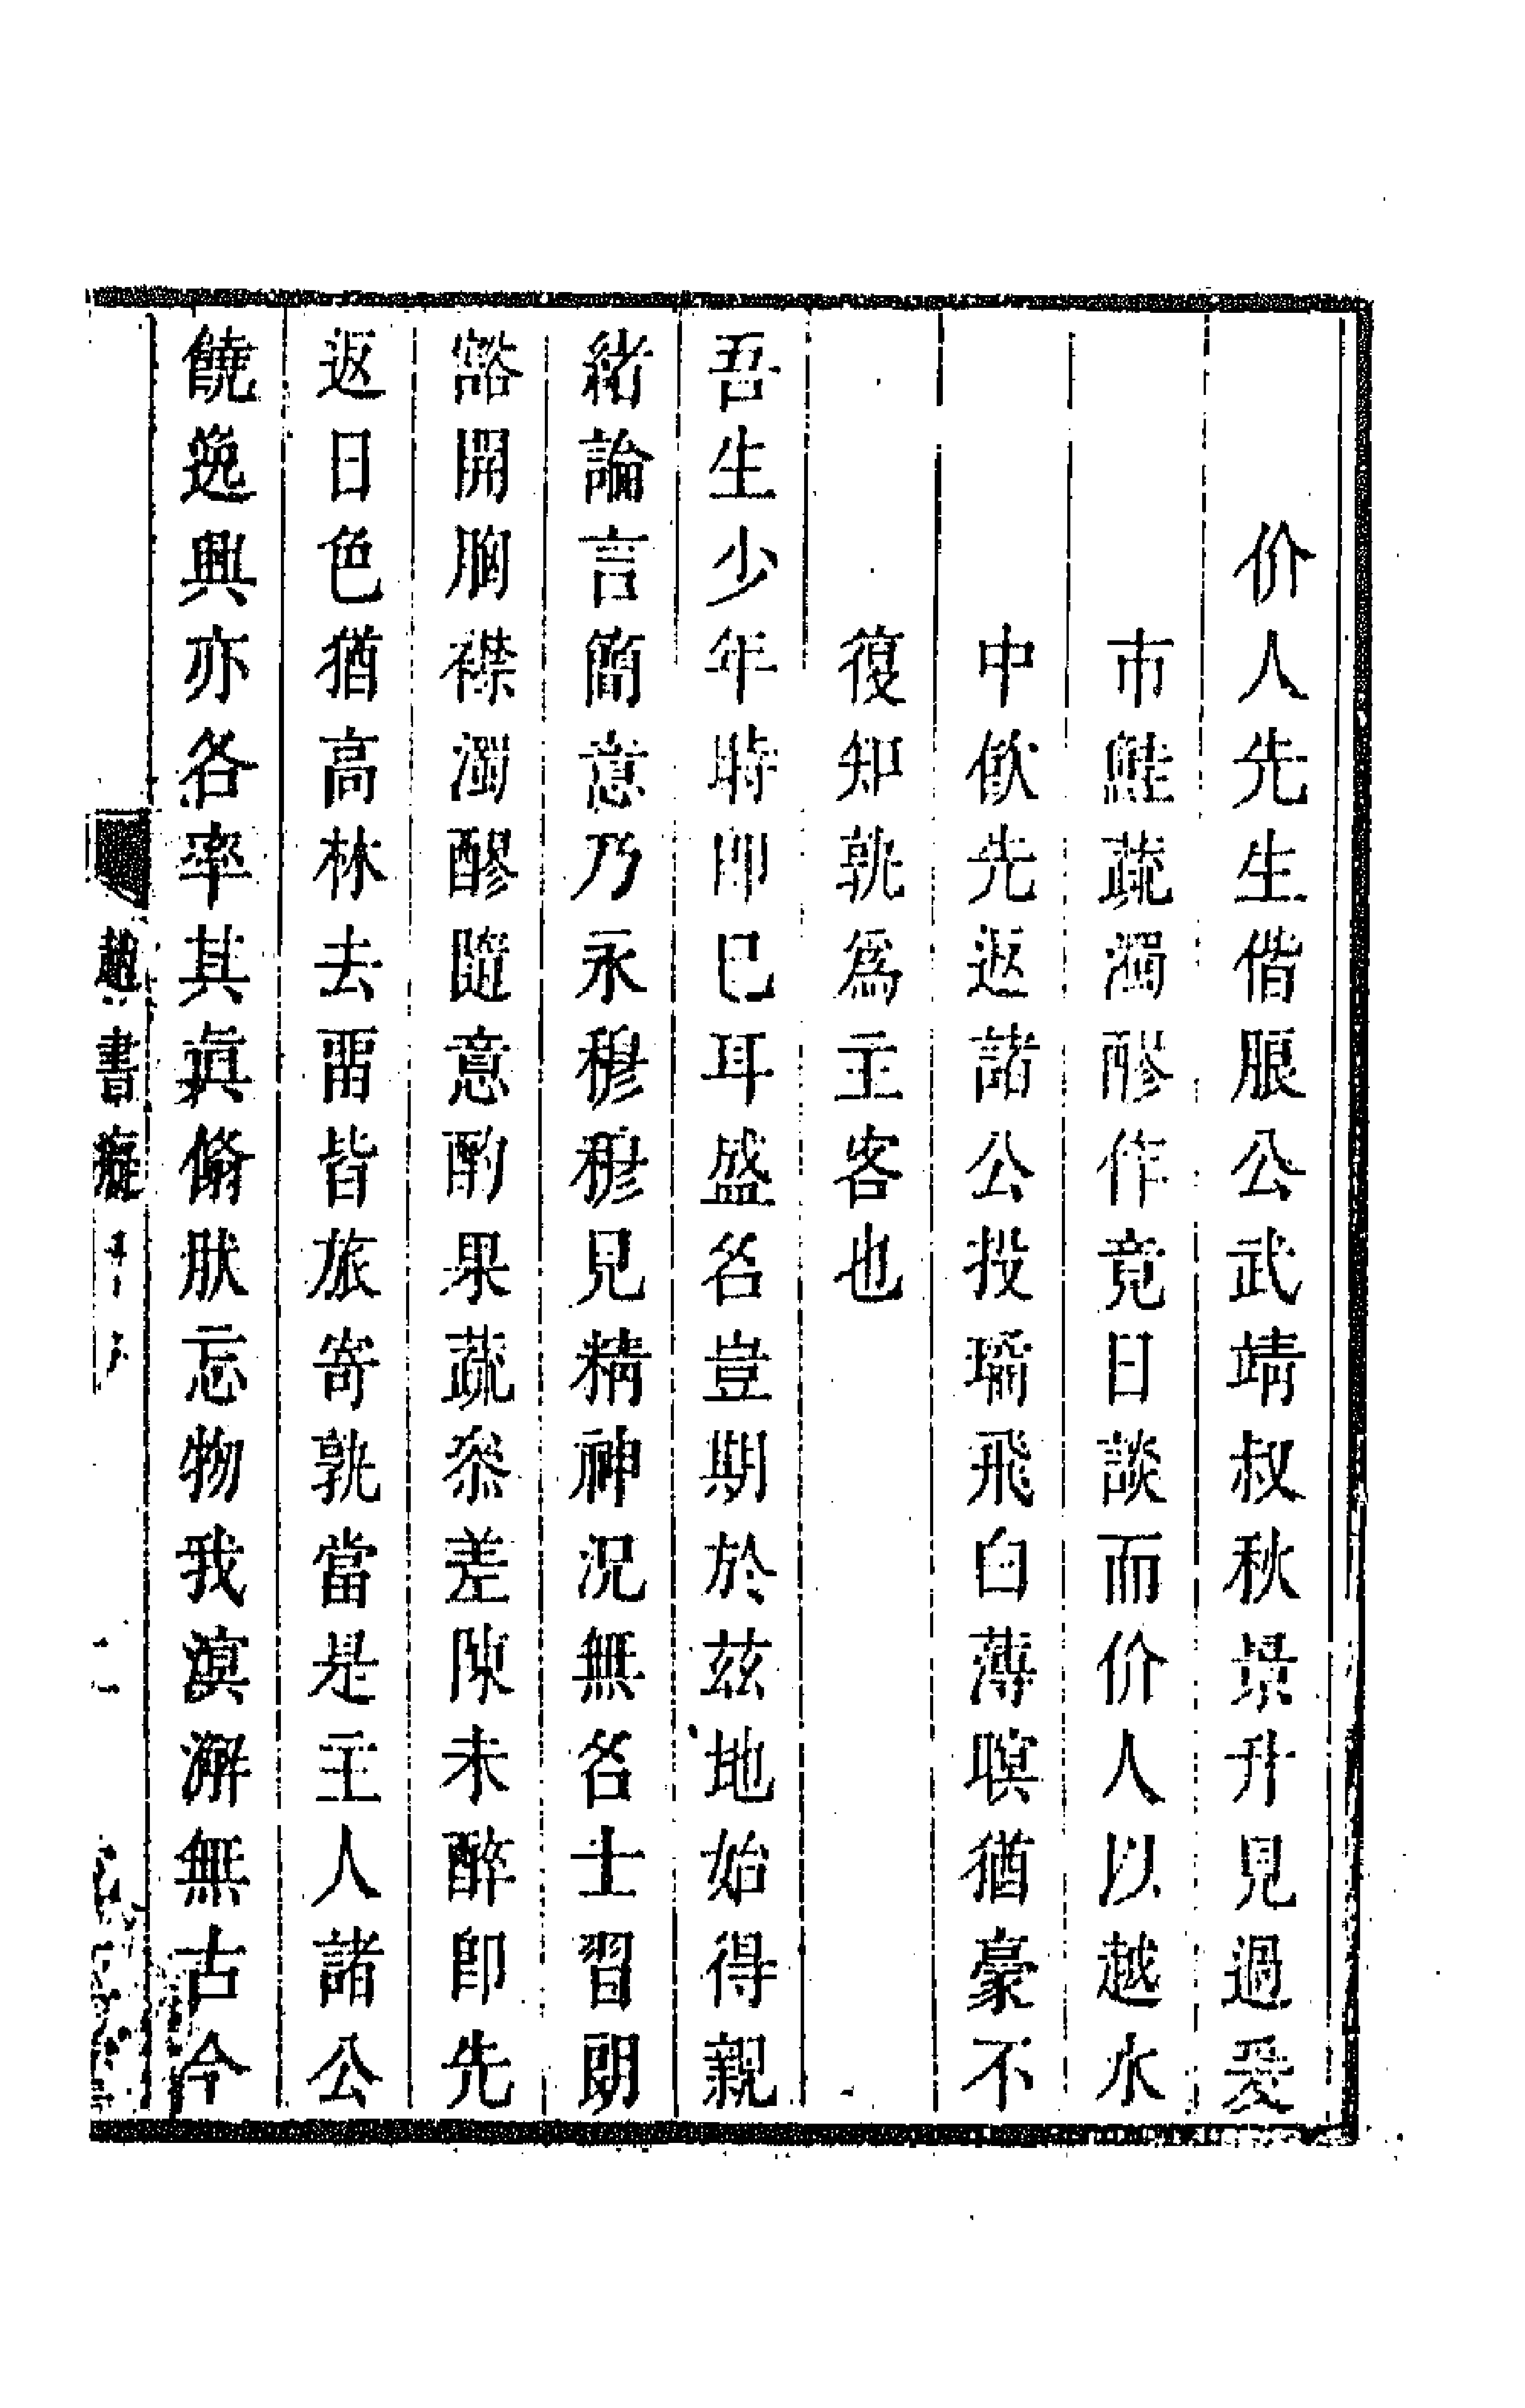 价人先生偕脤公武靖叔秋景升見過爰
市鮭蔬濁醪作竟日談而价人以越水
中飮先返諸公投瑜飛白薄暝猶豪不
復知孰爲主客也
吾生少年時卽已耳盛名豈期於茲地始得親
緒論言簡意乃永穆穆見精神況無名士習朗
豁開胸襟濁醪隨意酌果蔬叅差陳未醉卽先
返日色猶高林去畱皆旅寄孰當是主人諸公
饒逸興亦各率其眞翛肰忘物我溟澥無古今
書癡